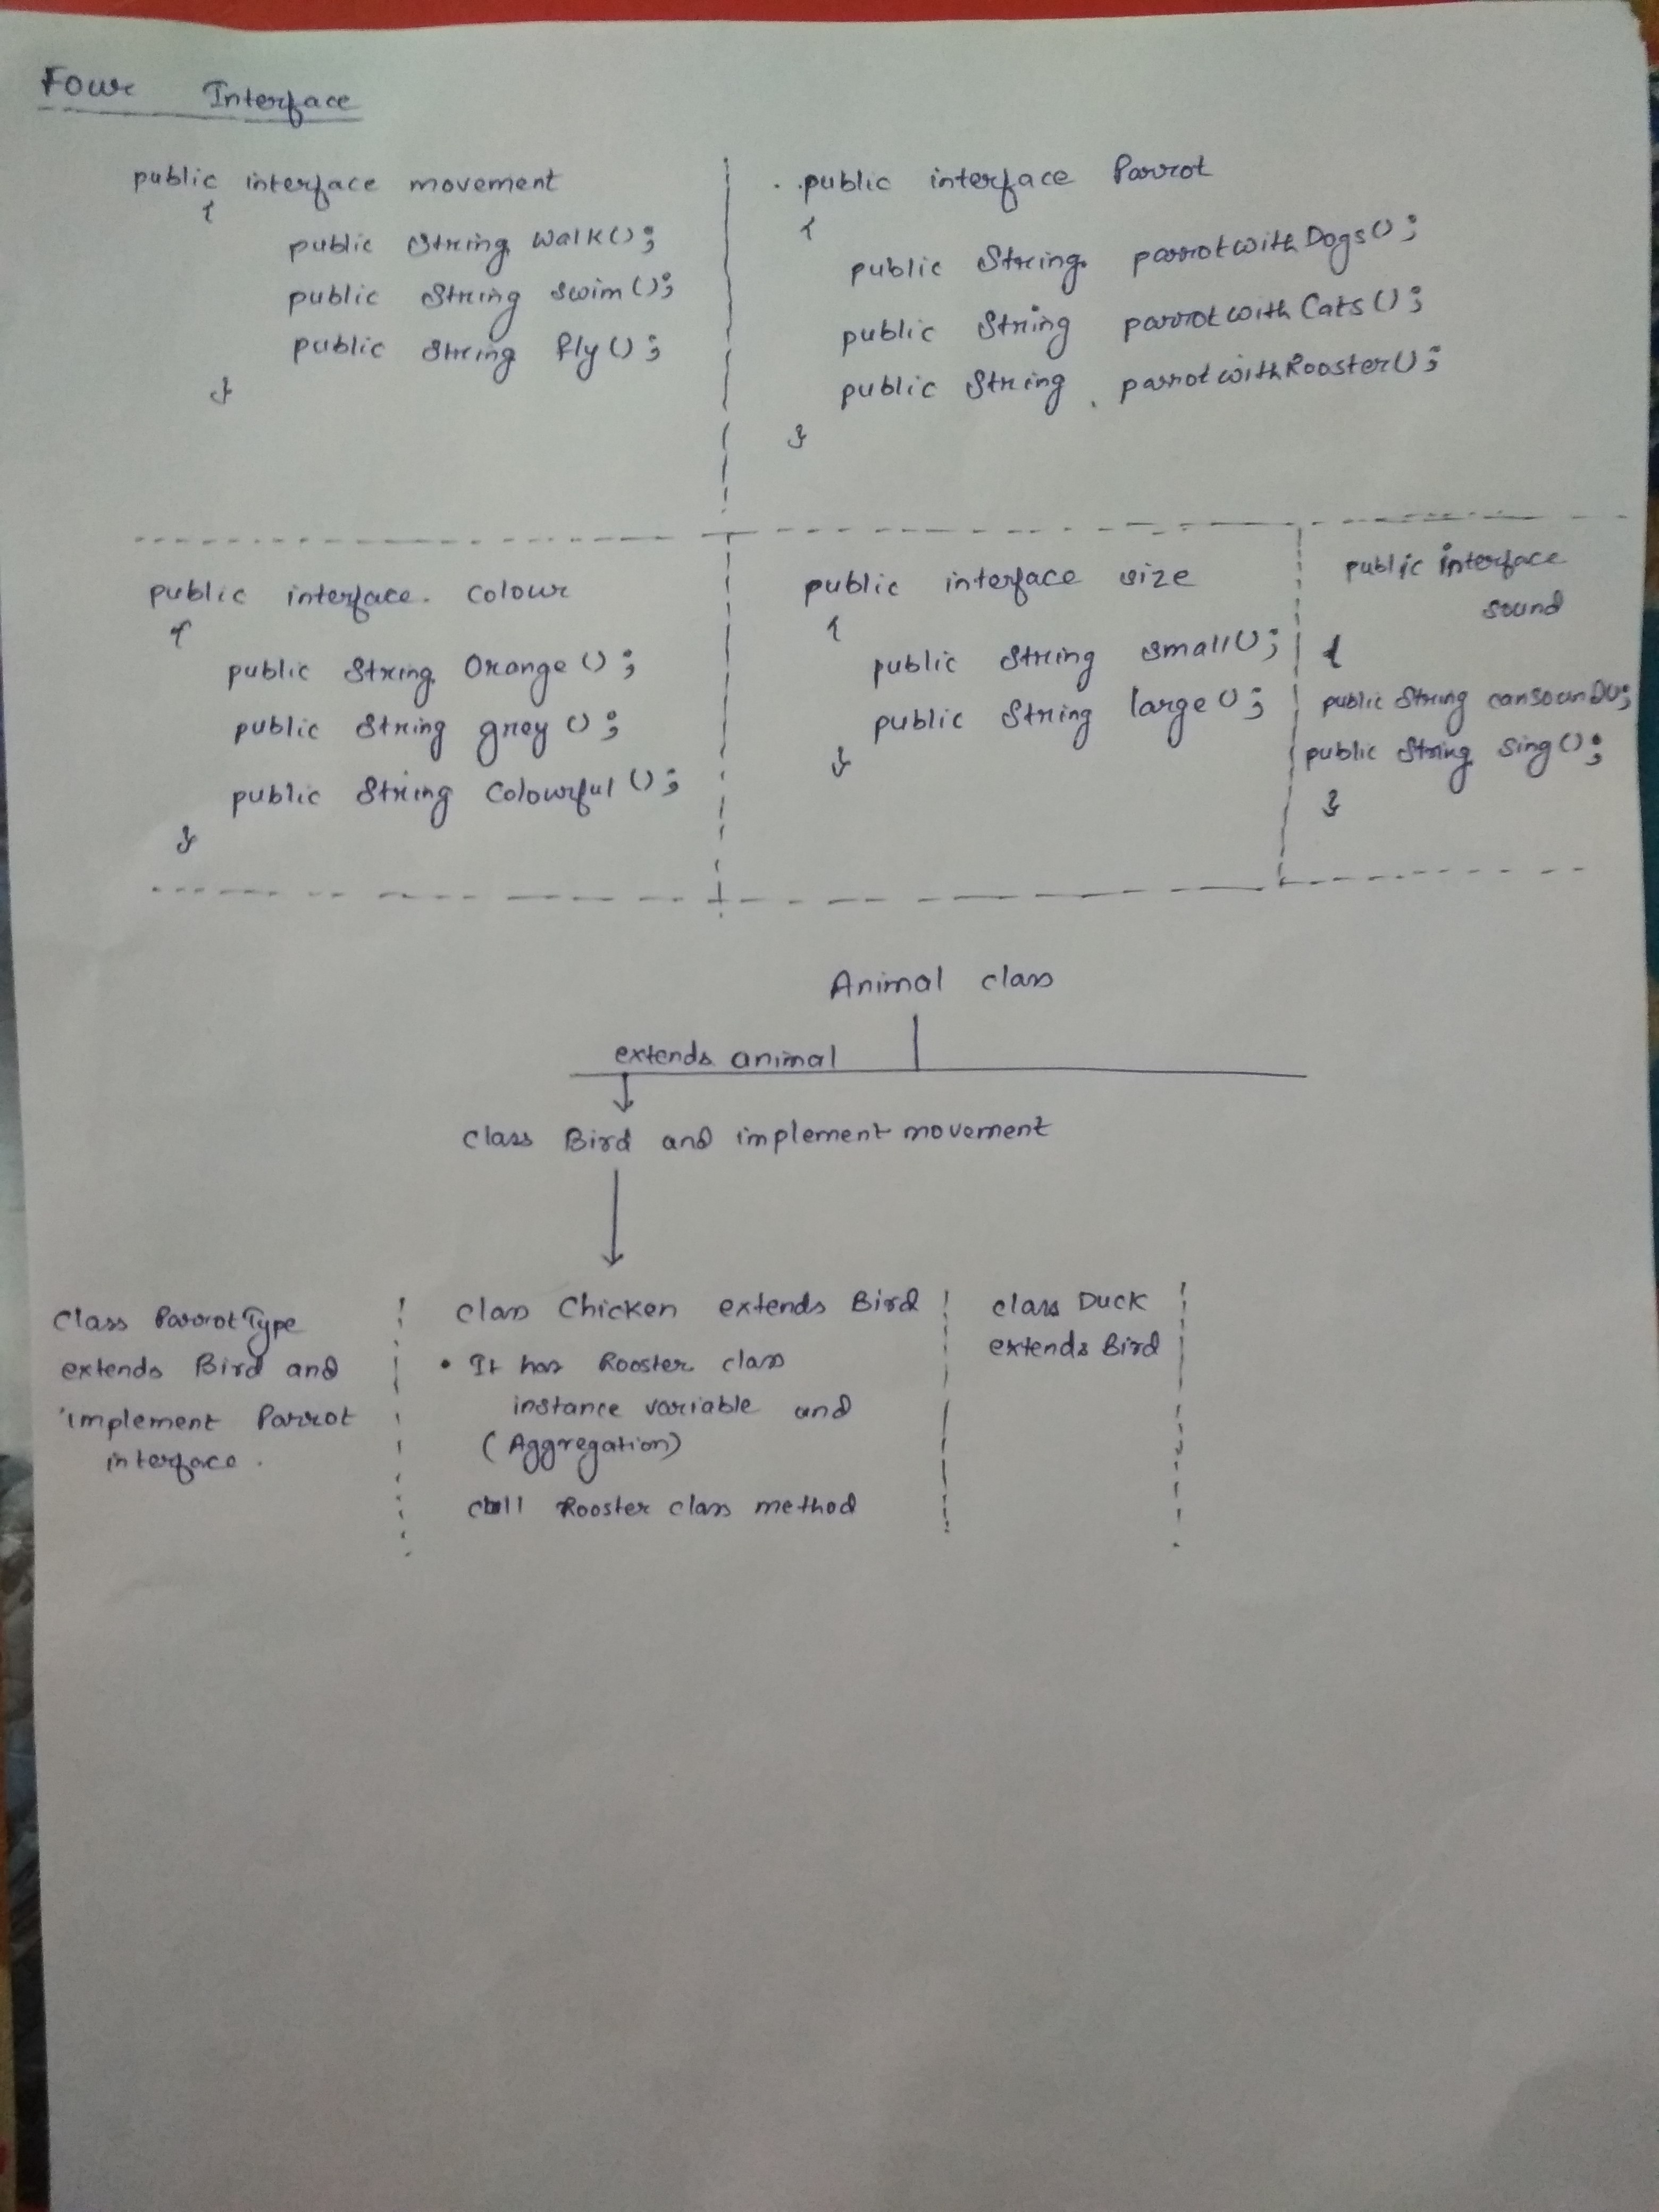 Four Interface
public interface movement
{
public String Walk();
public String swim();
public String fly();
}
public interface Parrot
{
public String parrotwithDogs();
public String parrotwithCats();
public String parrotwithRooster();
}
public interface. Colour
{
public String Orange();
public String grey();
public String Colourful();
}
public interface size
{
public String small();
public String large();
}
public interface
sound
{
public String cansounD();
public String Sing();
}
Animal class
extends animal
class Bird and implement movement
Class ParrotType
extends Bird and
implement Parrot
interface.
class Chicken extends Bird
• It has Rooster class
instance variable and
(Aggregation)
call Rooster class method
class Duck
extends Bird